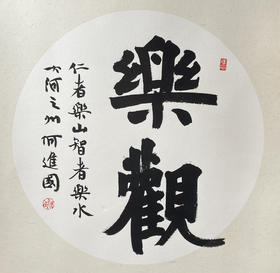 樂觀
仁者樂山智者樂水
大河之州何進國